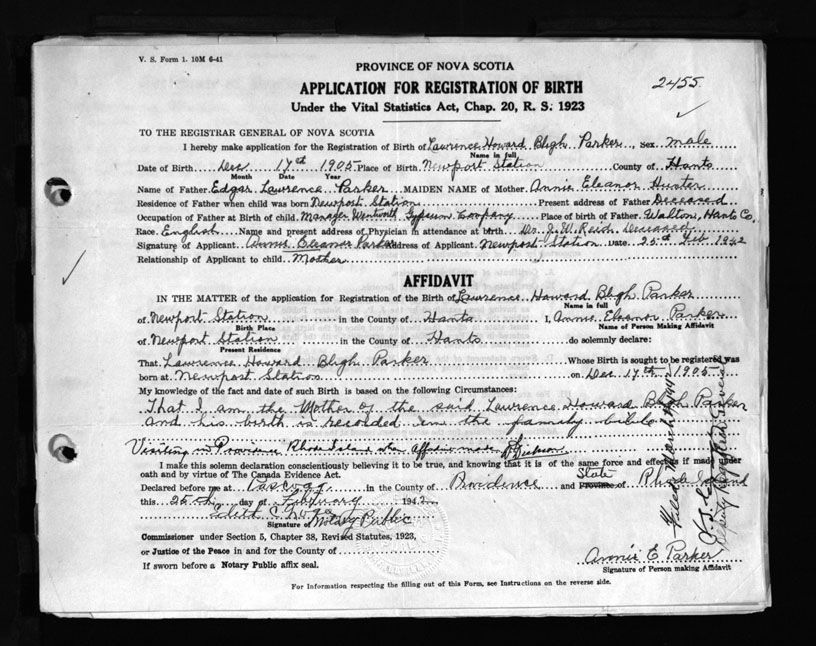 V. S. Form 1. 10M 6-41
PROVINCE OF NOVA SCOTIA
APPLICATION FOR REGISTRATION OF BIRTH
2455
Under the Vital Statistics Act, Chap. 20, R. S. 1923
TO THE REGISTRAR GENERAL OF NOVA SCOTIA
I hereby make application for the Registration of Birth of Lawrence Howard Bligh Parker, sex male
Name in full
Date of Birth Dec 17th 1905 Place of Birth Newport Station County of Hants
Month Date Year
Name of Father Edgar Lawrence Parker MAIDEN NAME of Mother Annie Eleanor Hunter
Residence of Father when child was born Newport Station Present address of Father Deceased
Occupation of Father at Birth of child Manager Wentworth Gypsum Company Place of birth of Father Walton, Hants Co.
Race English Name and present address of Physician in attendance at birth J. W. Reid Deceased
Signature of Applicant Annie Eleanor Parker Address of Applicant Newport Station Date 25th Feb 1942
Relationship of Applicant to child Mother
AFFIDAVIT
IN THE MATTER of the application for Registration of the Birth of Lawrence Howard Bligh Parker
Name in full
of Newport Station in the County of Hants I, Annie Eleanor Parker
Birth Place Name of Person Making Affidavit
of Newport Station in the County of Hants do solemnly declare:
Present Residence
That Lawrence Howard Bligh Parker Whose Birth is sought to be registered was
born at Newport Station on Dec 17th 1905
My knowledge of the fact and date of such Birth is based on the following Circumstances:
That I am the Mother of the said Lawrence Howard Bligh Parker
and his birth is recorded in the family bible
Visiting in Providence Rhode Island when affidavit made
I make this solemn declaration conscientiously believing it to be true, and knowing that it is of the same force and effect as if made under
oath and by virtue of The Canada Evidence Act.
Declared before me at in the County of Providence and State Province of Rhode Island
this 25th day of February 1942
Edith C.
Signature of Notary Public
Commissioner under Section 5, Chapter 38, Revised Statutes, 1923,
or Justice of the Peace in and for the County of
If sworn before a Notary Public affix seal.
Annie E Parker
Signature of Person making Affidavit
Filed March
Deputy Registrar General
For Information respecting the filling out of this Form, see Instructions on the reverse side.